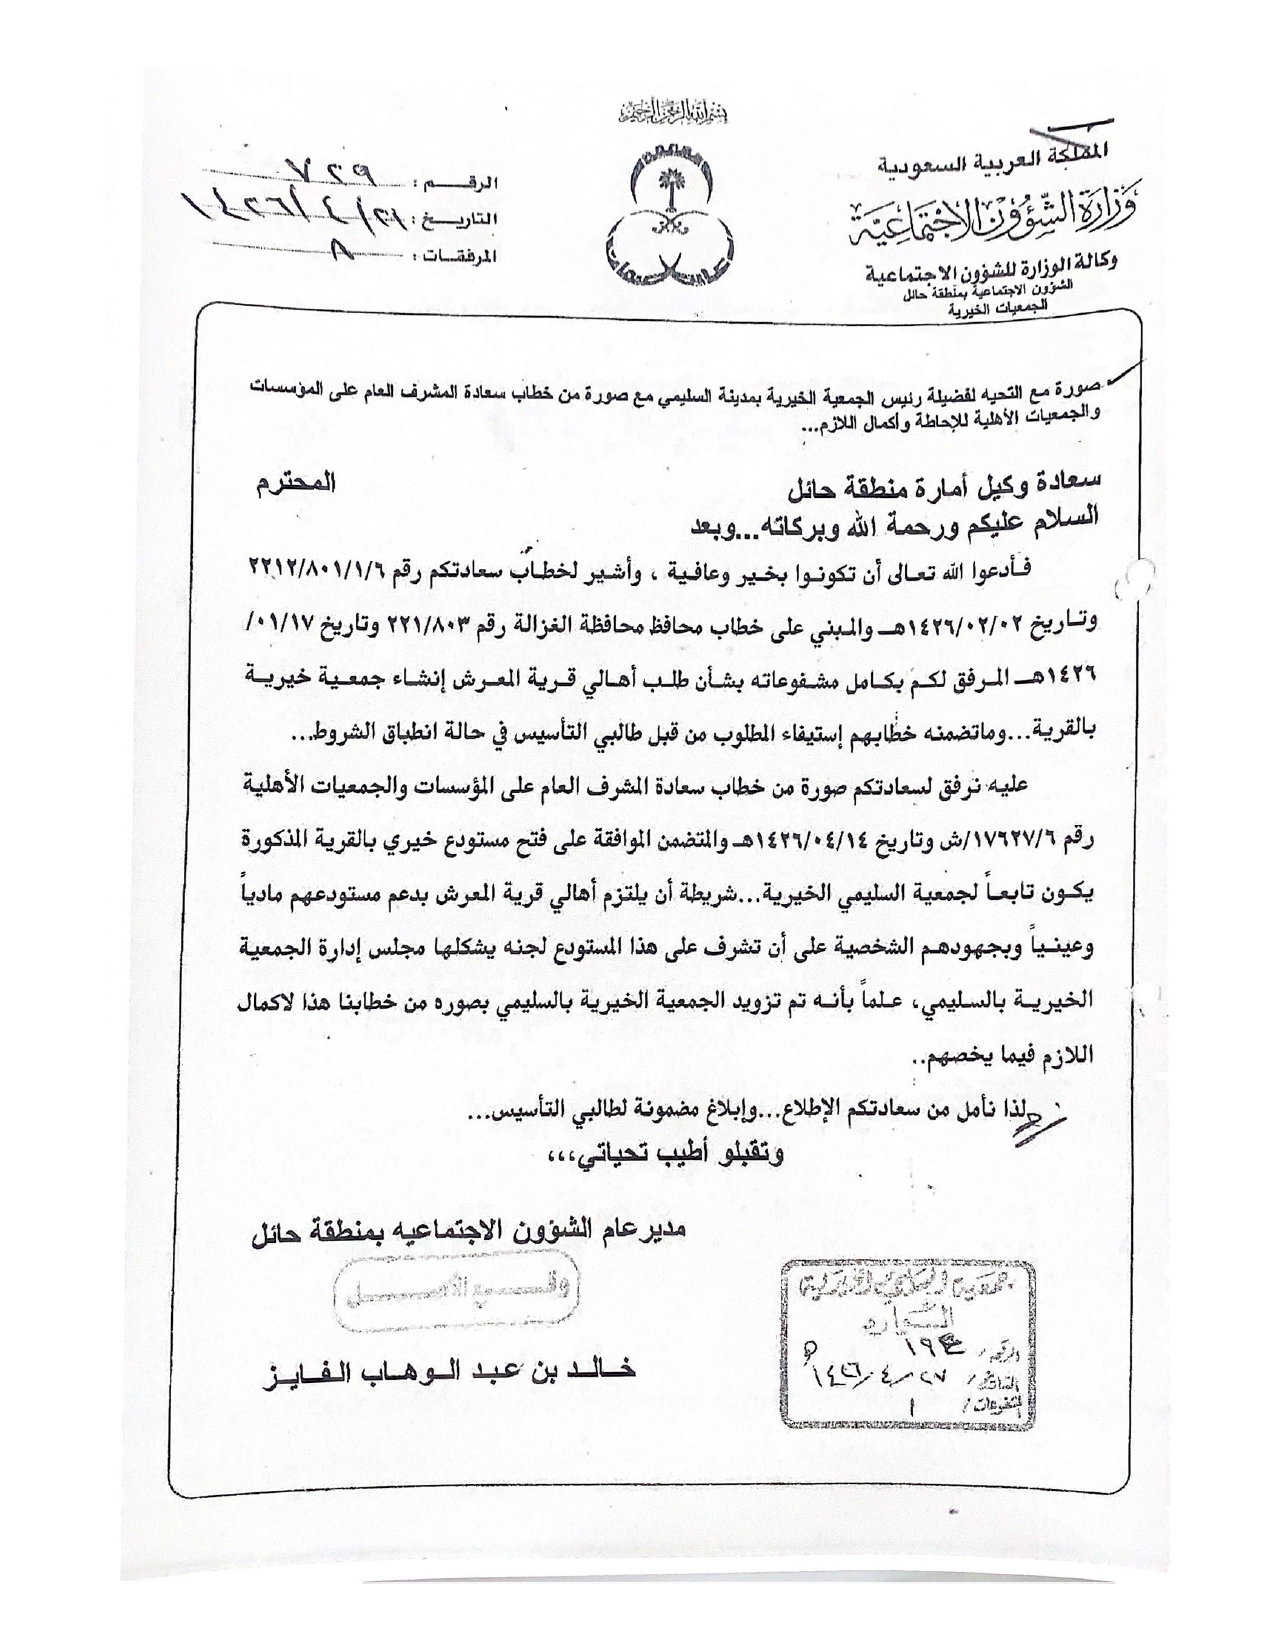 بسم الله الرحمن الرحيم
المملكة العربية السعودية
وزارة الشؤون الاجتماعية
وكالة الوزارة للشؤون الاجتماعية
الشؤون الاجتماعية بمنطقة حائل
الجمعيات الخيرية
الرقـــم : ٧٢٩
التاريـخ : ١٤٢٦/٤/٢١
المرفقـات : ٨
صورة مع التحيه لفضيلة رئيس الجمعية الخيرية بمدينة السليمي مع صورة من خطاب سعادة المشرف العام على المؤسسات
والجمعيات الأهلية للإحاطة وأكمال اللازم...
سعادة وكيل أمارة منطقة حائل المحترم
السلام عليكم ورحمة الله وبركاته...وبعد
فأدعوا الله تعالى أن تكونوا بخير وعافية ، وأشير لخطاب سعادتكم رقم ٢٢١٢/٨٠١/١/٦
وتاريخ ١٤٢٦/٠٢/٠٢هـ والمبني على خطاب محافظ محافظة الغزالة رقم ٢٢١/٨٠٣ وتاريخ ٠١/١٧/
١٤٢٦هـ المرفق لكم بكامل مشفوعاته بشأن طلب أهالي قرية المعرش إنشاء جمعية خيرية
بالقرية...وماتضمنه خطابهم إستيفاء المطلوب من قبل طالبي التأسيس في حالة انطباق الشروط...
عليه نرفق لسعادتكم صورة من خطاب سعادة المشرف العام على المؤسسات والجمعيات الأهلية
رقم ١٧٦٢٧/٦/ش وتاريخ ١٤٢٦/٠٤/١٤هـ والمتضمن الموافقة على فتح مستودع خيري بالقرية المذكورة
يكون تابعاً لجمعية السليمي الخيرية...شريطة أن يلتزم أهالي قرية المعرش بدعم مستودعهم مادياً
وعينياً وبجهودهم الشخصية على أن تشرف على هذا المستودع لجنه يشكلها مجلس إدارة الجمعية
الخيرية بالسليمي، علماً بأنه تم تزويد الجمعية الخيرية بالسليمي بصوره من خطابنا هذا لاكمال
اللازم فيما يخصهم..
لذا نأمل من سعادتكم الإطلاع...وإبلاغ مضمونة لطالبي التأسيس...
وتقبلو أطيب تحياتي،،،
مدير عام الشؤون الاجتماعيه بمنطقة حائل
وقـــيع الأصـــل
خالد بن عبد الوهاب الفايز
الرقم /
التاريخ / ١٤٢٦/٤/٢٧ هـ
المشفوعات / ١